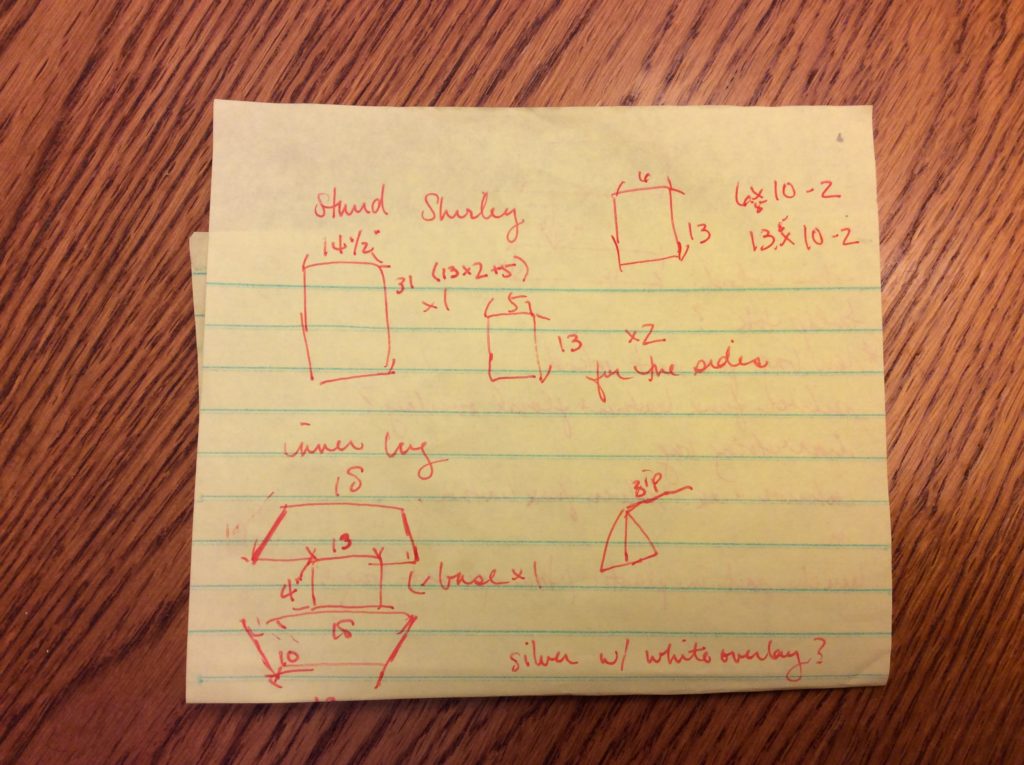 Shirley
14 1/2"
31 (13x2+5)
x1
5
13 x2
for the sides
6
13
6 x 10 - 2
13 x 10 - 2
inner bag
18
13
4"
base x 1
18
10
zip
silver w/ white overlay?